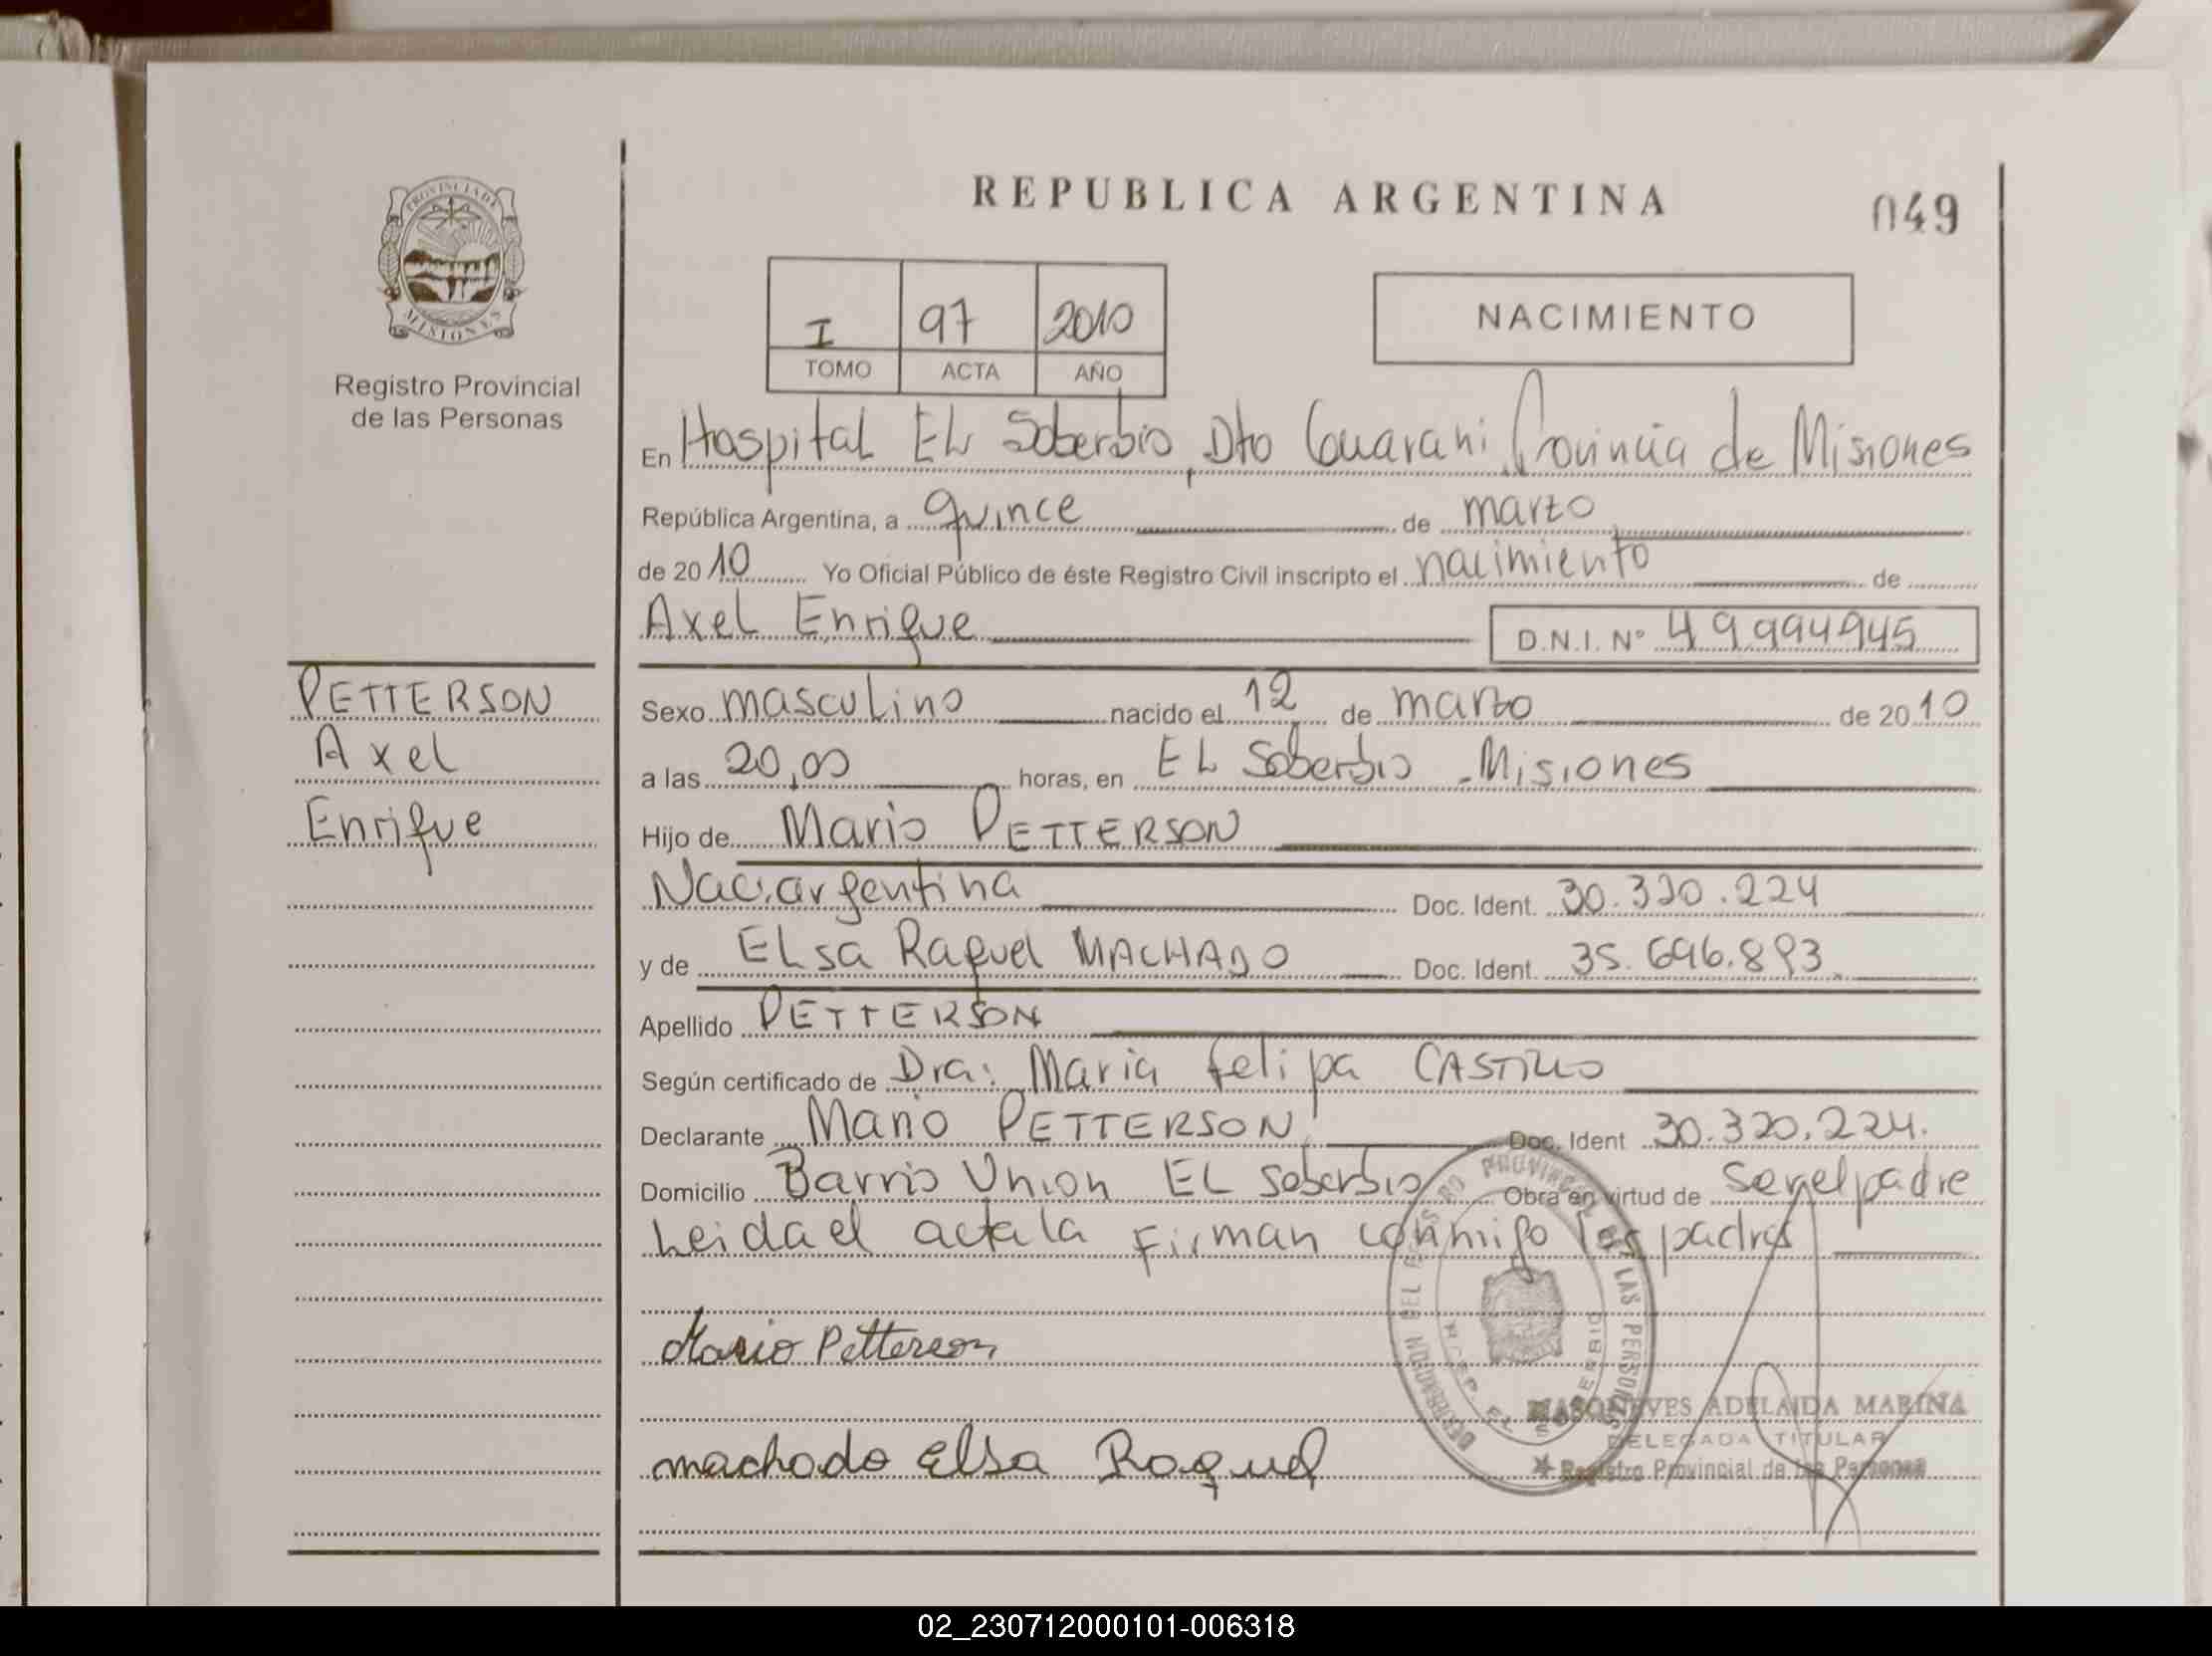 REPUBLICA ARGENTINA
049
PROVINCIA DE MISIONES
Registro Provincial
de las Personas
I 97 2010
TOMO ACTA AÑO
NACIMIENTO
En Hospital EL Soberbio, Dto Guarani, Provincia de Misiones
República Argentina, a quince de marzo
de 2010 Yo Oficial Público de éste Registro Civil inscripto el nacimiento de
Axel Enrique D.N.I. Nº 49994945
PETTERSON
Axel
Enrique
Sexo masculino nacido el 12 de marzo de 2010
a las 20,00 horas, en EL Soberbio - Misiones
Hijo de Mario PETTERSON
Nac. argentina Doc. Ident. 30.320.224
y de ELsa Raquel MACHADO Doc. Ident. 35.696.893
Apellido PETTERSON
Según certificado de Dra: Maria Felipa CASTILLO
Declarante Mario PETTERSON Doc. Ident 30.320.224.
Domicilio Barrio Union EL Soberbio Obra en virtud de ser el padre
Leida el acta la Firman conmigo los padres
Mario Petterson
machado Elsa Raquel
ADELAIDA MARINA
DELEGADA TITULAR
Registro Provincial de las Personas
02_230712000101-006318